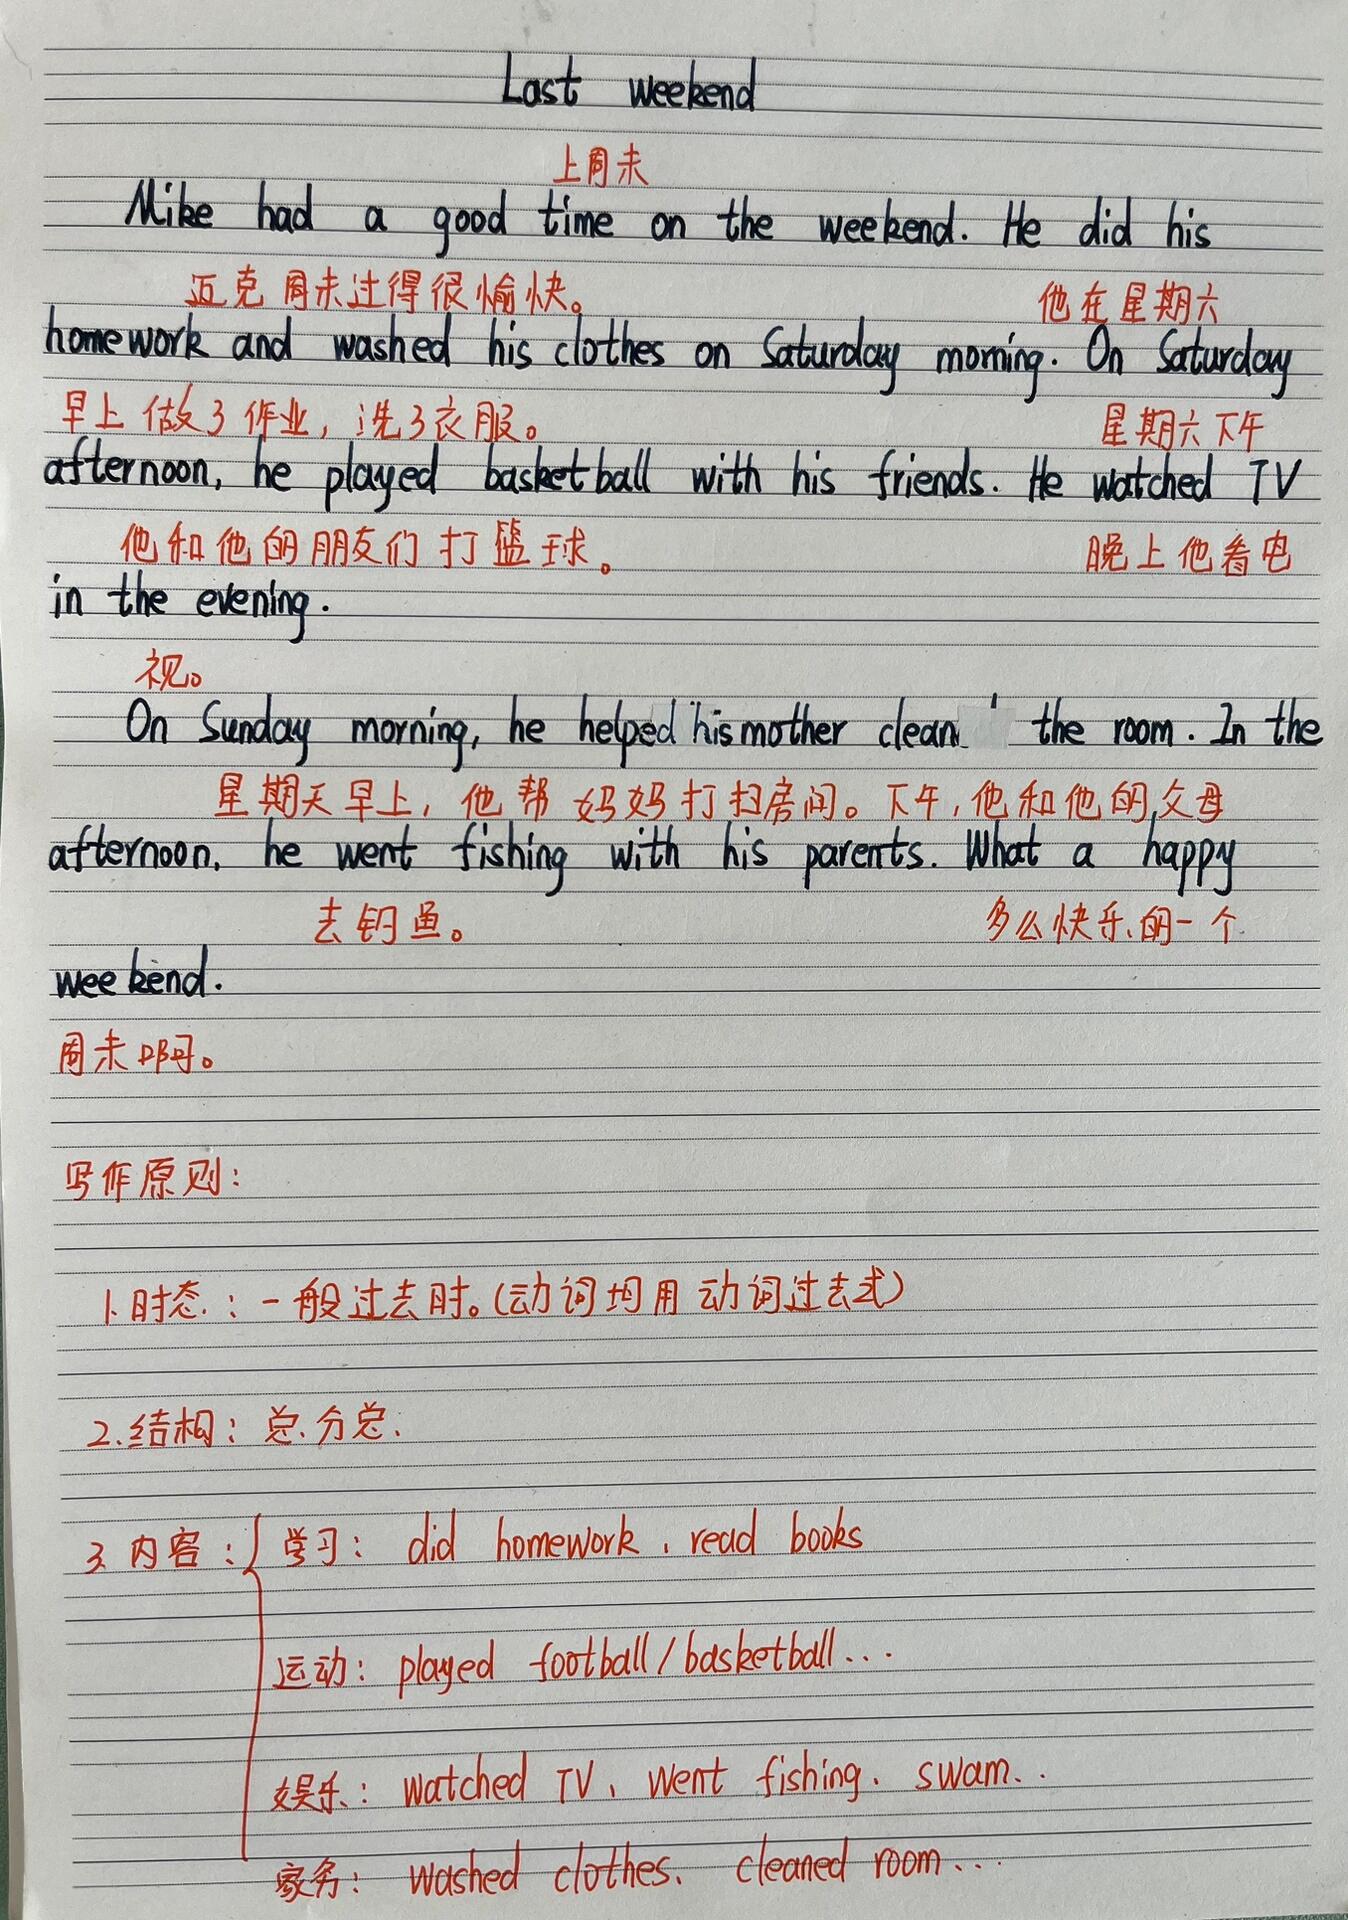 Last weekend
上周末
Mike had a good time on the weekend. He did his
迈克周末过得很愉快。 他在星期六
homework and washed his clothes on Saturday morning. On Saturday
早上做了作业，洗了衣服。 星期六下午
afternoon, he played basketball with his friends. He watched TV
他和他的朋友们打篮球。 晚上他看电
in the evening.
视。
On Sunday morning, he helped his mother clean the room. In the
星期天早上，他帮妈妈打扫房间。下午，他和他的父母
afternoon, he went fishing with his parents. What a happy
去钓鱼。 多么快乐的一个
weekend.
周末啊。
写作原则：
1.时态：一般过去时。(动词均用动词过去式)
2.结构：总分总.
3.内容：{学习：did homework、read books
运动：played football/basketball...
娱乐：watched TV、went fishing、swam...
家务：washed clothes、cleaned room...